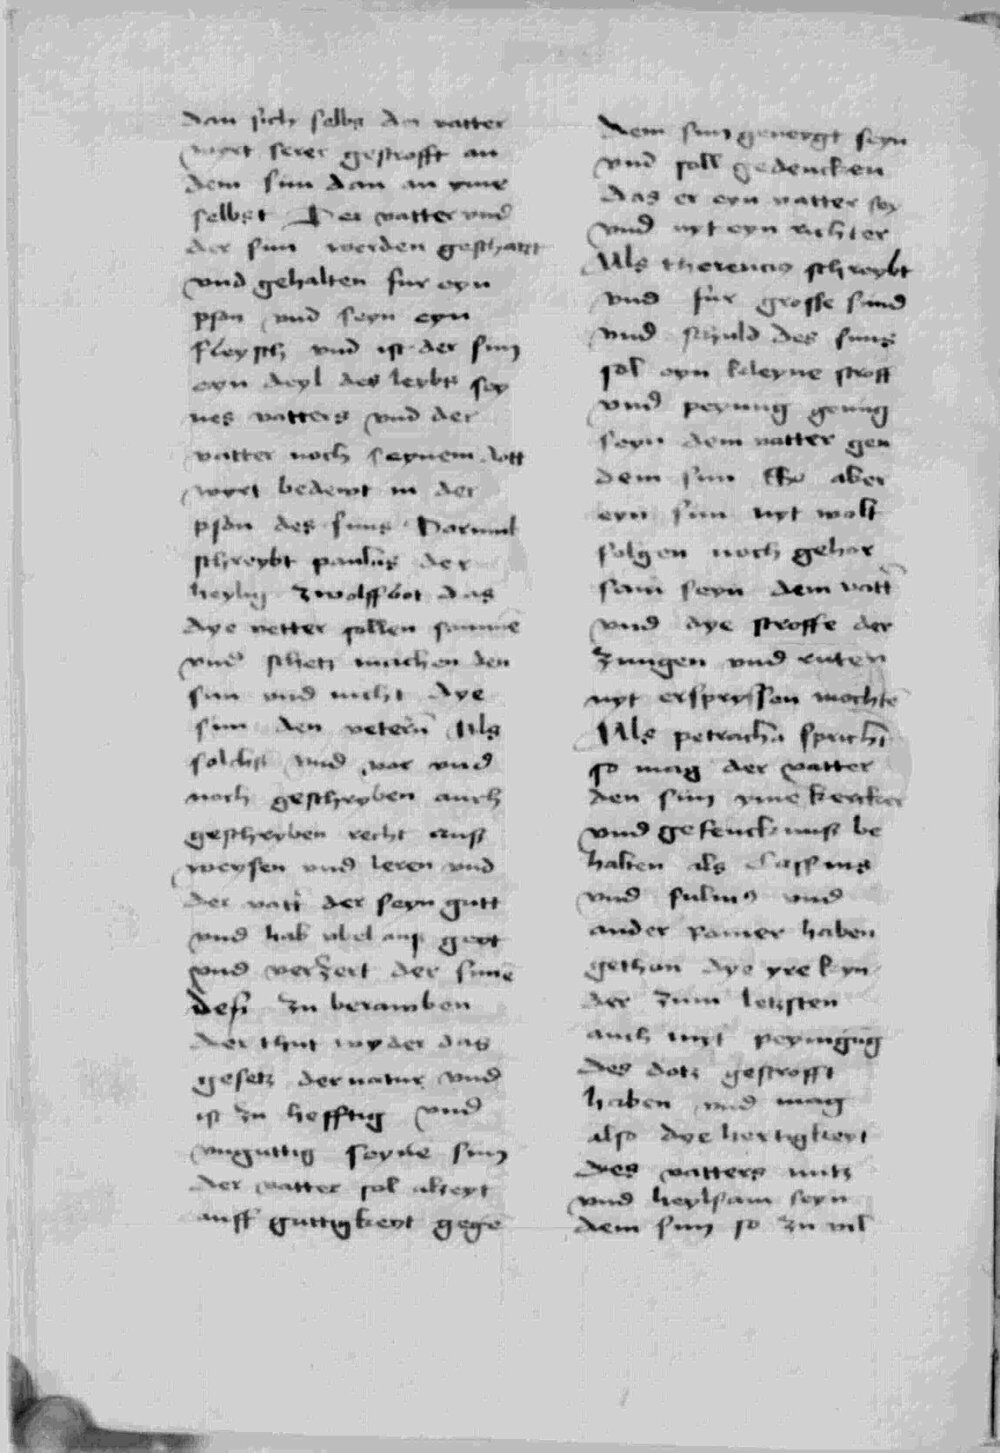 dan sich selbs der vatter
wyrt serer gestrofft an
dem sun dan an yme
selbst Der vatter vnd
der sun werden geschatzt
vnd gehalten fur eyn
pson vnd seyn eyn
fleysch vnd ist der sun
eyn deyl des leybs sey
nes vatters vnd der
vatter noch seynem dott
wyrt bedewt in der
pson des suns Darumb
schreybt paulus der
heylig zwolffbot das
dye vetter sollen samme
vnd schetz machen den
sun vnd nicht dye
sun den vetern Als
solchs vnd vor vnd
noch geschryben auch
geschryben recht auß
weysen vnd leren vnd
der vatt der seyn gutt
vnd hab vbel auß gert
vnd verzert der sune
deß zu berawben
der thut wyder das
gesetz der natur vnd
ist zu hefftig vnd
vnguttig seyne sun
der vatter sol alzeyt
auff guttigkeyt gege
dem sun geneygt seyn
vnd soll gedencken
das er eyn vatter sey
vnd nyt eyn richter
Als therencius schreybt
vnd fur grosse sund
vnd schuld des suns
sol eyn kleyne stroff
vnd peynung genug
seyn dem vatter gen
dem sun So aber
eyn sun nyt wolt
folgen noch gehor
sam seyn dem vatt
vnd dye stroffe der
zungen vnd ruten
nyt erspryssen mochte
Als petracha spricht
so mag der vatter
den sun yme kercker
vnd gefencknuß be
halten als Cassius
vnd fulvius vnd
ander romer haben
gethan dye yre kyn
der zum letzsten
auch myt peynigug
des dotz gestrofft
haben vnd mag
also dye hertigkeyt
des vatters nutz
vnd heylsam seyn
dem sun so zu vil